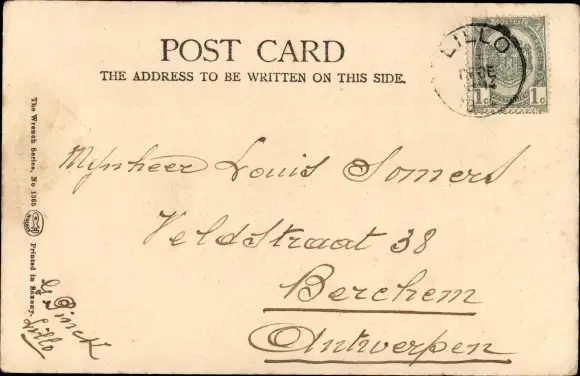 POST CARD
THE ADDRESS TO BE WRITTEN ON THIS SIDE.
LILLO
1c 1c
Mynheer Louis Somers
Veldstraat 38
Berchem
Antwerpen
The Wrench Series, No 1365
Printed in Saxony.
G Pinck
Lillo